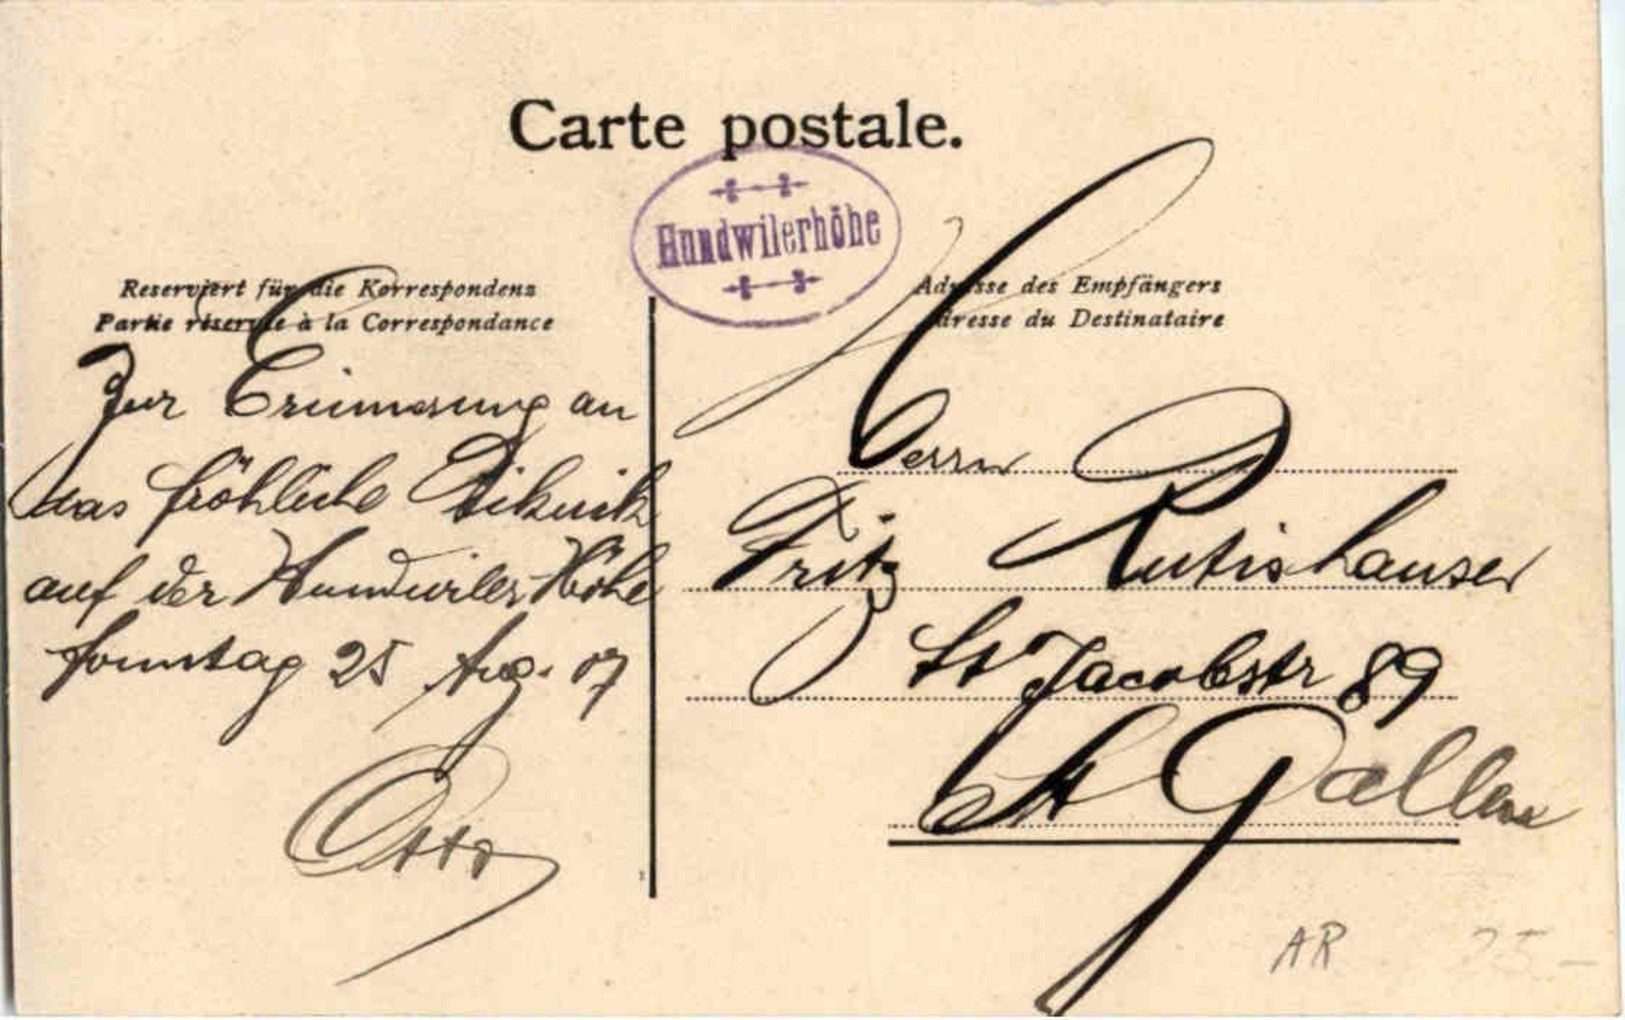 Carte postale.
Hundwilerhöhe
Reserviert für die Korrespondenz
Partie réservée à la Correspondance
Adresse des Empfängers
Adresse du Destinataire
Zur Erinnerung an
das fröhliche Piknik
auf der Hundwiler Höhe
Sonntag 25 Aug. 07
Otto
Herrn
Fritz Rutishauser
St Jacobstr 89
St Gallen
AR 25-